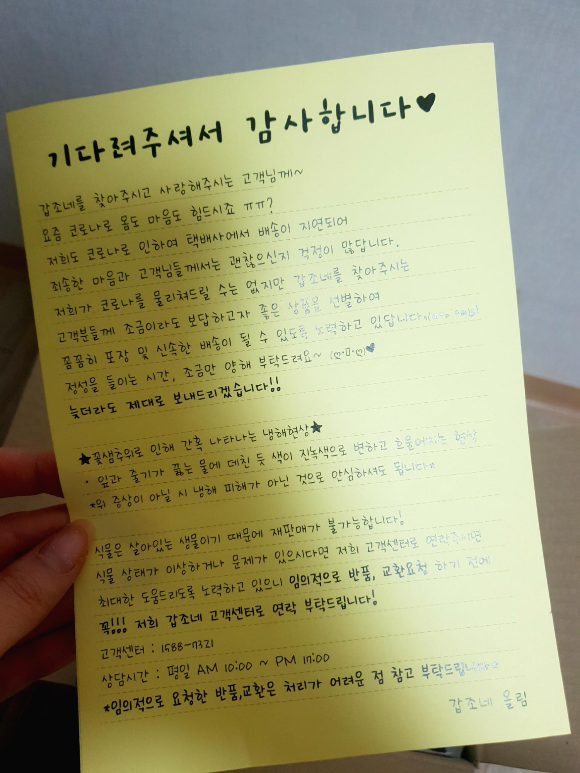 기다려주셔서 감사합니다♥
갑조네를 찾아주시고 사랑해주시는 고객님께~
요즘 코로나로 몸도 마음도 힘드시죠 ㅠㅠ?
저희도 코로나로 인하여 택배사에서 배송이 지연되어
죄송한 마음과 고객님들께서는 괜찮으신지 걱정이 많답니다.
저희가 코로나를 물리쳐드릴 수는 없지만 갑조네를 찾아주시는
고객분들께 조금이라도 보답하고자 좋은 상품을 선별하여
꼼꼼히 포장 및 신속한 배송이 될 수 있도록 노력하고 있답니다
정성을 들이는 시간, 조금만 양해 부탁드려요~
늦더라도 제대로 보내드리겠습니다!!
★꽃샘추위로 인해 간혹 나타나는 냉해현상★
· 잎과 줄기가 끓는 물에 데친 듯 색이 진녹색으로 변하고 흐물어지는 현상
*위 증상이 아닐 시 냉해 피해가 아닌 것으로 안심하셔도 됩니다
식물은 살아있는 생물이기 때문에 재판매가 불가능합니다!
식물 상태가 이상하거나 문제가 있으시다면 저희 고객센터로 연락주시면
최대한 도움드리도록 노력하고 있으니 임의적으로 반품, 교환요청 하기 전에
꼭!!! 저희 갑조네 고객센터로 연락 부탁드립니다!
고객센터 : 1588-7321
상담시간 : 평일 AM 10:00 ~ PM 17:00
*임의적으로 요청한 반품,교환은 처리가 어려운 점 참고 부탁드립니다
갑조네 올림